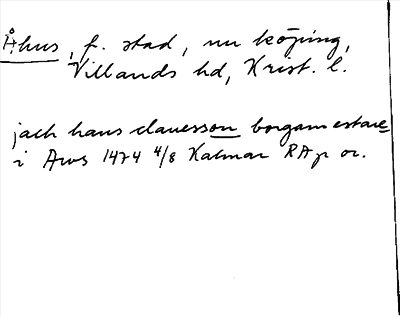 Åhus, f. stad, nu köping,
Villands hd, Krist. l.
jach hans clauesson borgamestare
i Aws 1474 4/8 Kalmar RAp or.